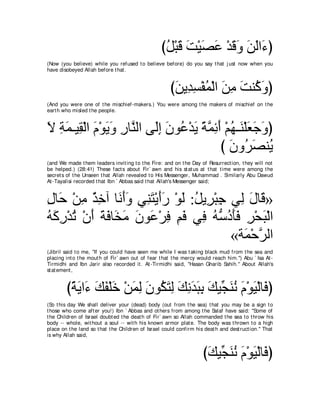 (ءَالَْٔنَ وَقَدْ عَصَيْتَ قَبْلُ)
(Now (you believe) while you refused to believe before) do you say that just now when you
have disobeyed Allah before that.
(وَكُنتَ مِنَ الْمُفْسِدِينَ)
(And you were one of the mischief-makers.) You were among the makers of mischief on the
earth who misled the people.
(وَجَعَلْنَـهُمْ أَئِمَّةً يَدْعُونَ إِلَى النَّارِ وَيَوْمَ الْقِيـمَةِ لاَ
يُنصَرُونَ )
(and We made them leaders inviting to the Fire: and on the Day of Resurrection, they will not
be helped.) (28:41) These facts about Fir`awn and his status at that time were among the
secrets of the Unseen that Allah revealed to His Messenger, Muhammad . Similarly Abu Dawud
At-Tayalisi recorded that Ibn `Abbas said that Allah's Messenger said;
«قَالَ لِي جِبْرِيلُ: لَوْ رَأَيْتَنِي وَأَنَا آخِذٌ مِنْ حَالِ
الْبَحْرِ فَأَدُسُّهُ فِي فَمِ فِرْعَوْنَ مَخَافَةَ أَنْ تُدْرِكَهُ
الرَّحْمَة»
(Jibril said to me, "If you could have seen me while I was taking black mud from the sea and
placing into the mouth of Fir`awn out of fear that the mercy would reach him.") Abu `Isa At-
Tirmidhi and Ibn Jarir also recorded it. At-Tirmidhi said, "Hasan Gharib Sahih." About Allah's
statement,
(فَالْيَوْمَ نُنَجِّيكَ بِبَدَنِكَ لِتَكُونَ لِمَنْ خَلْفَكَ ءَايَةً)
(So this day We shall deliver your (dead) body (out from the sea) that you may be a sign to
those who come after you!) Ibn `Abbas and others from among the Salaf have said: "Some of
the Children of Israel doubted the death of Fir`awn so Allah commanded the sea to throw his
body -- whole, without a soul -- with his known armor plate. The body was thrown to a high
place on the land so that the Children of Israel could confirm his death and destruction." That
is why Allah said,
(فَالْيَوْمَ نُنَجِّيكَ)